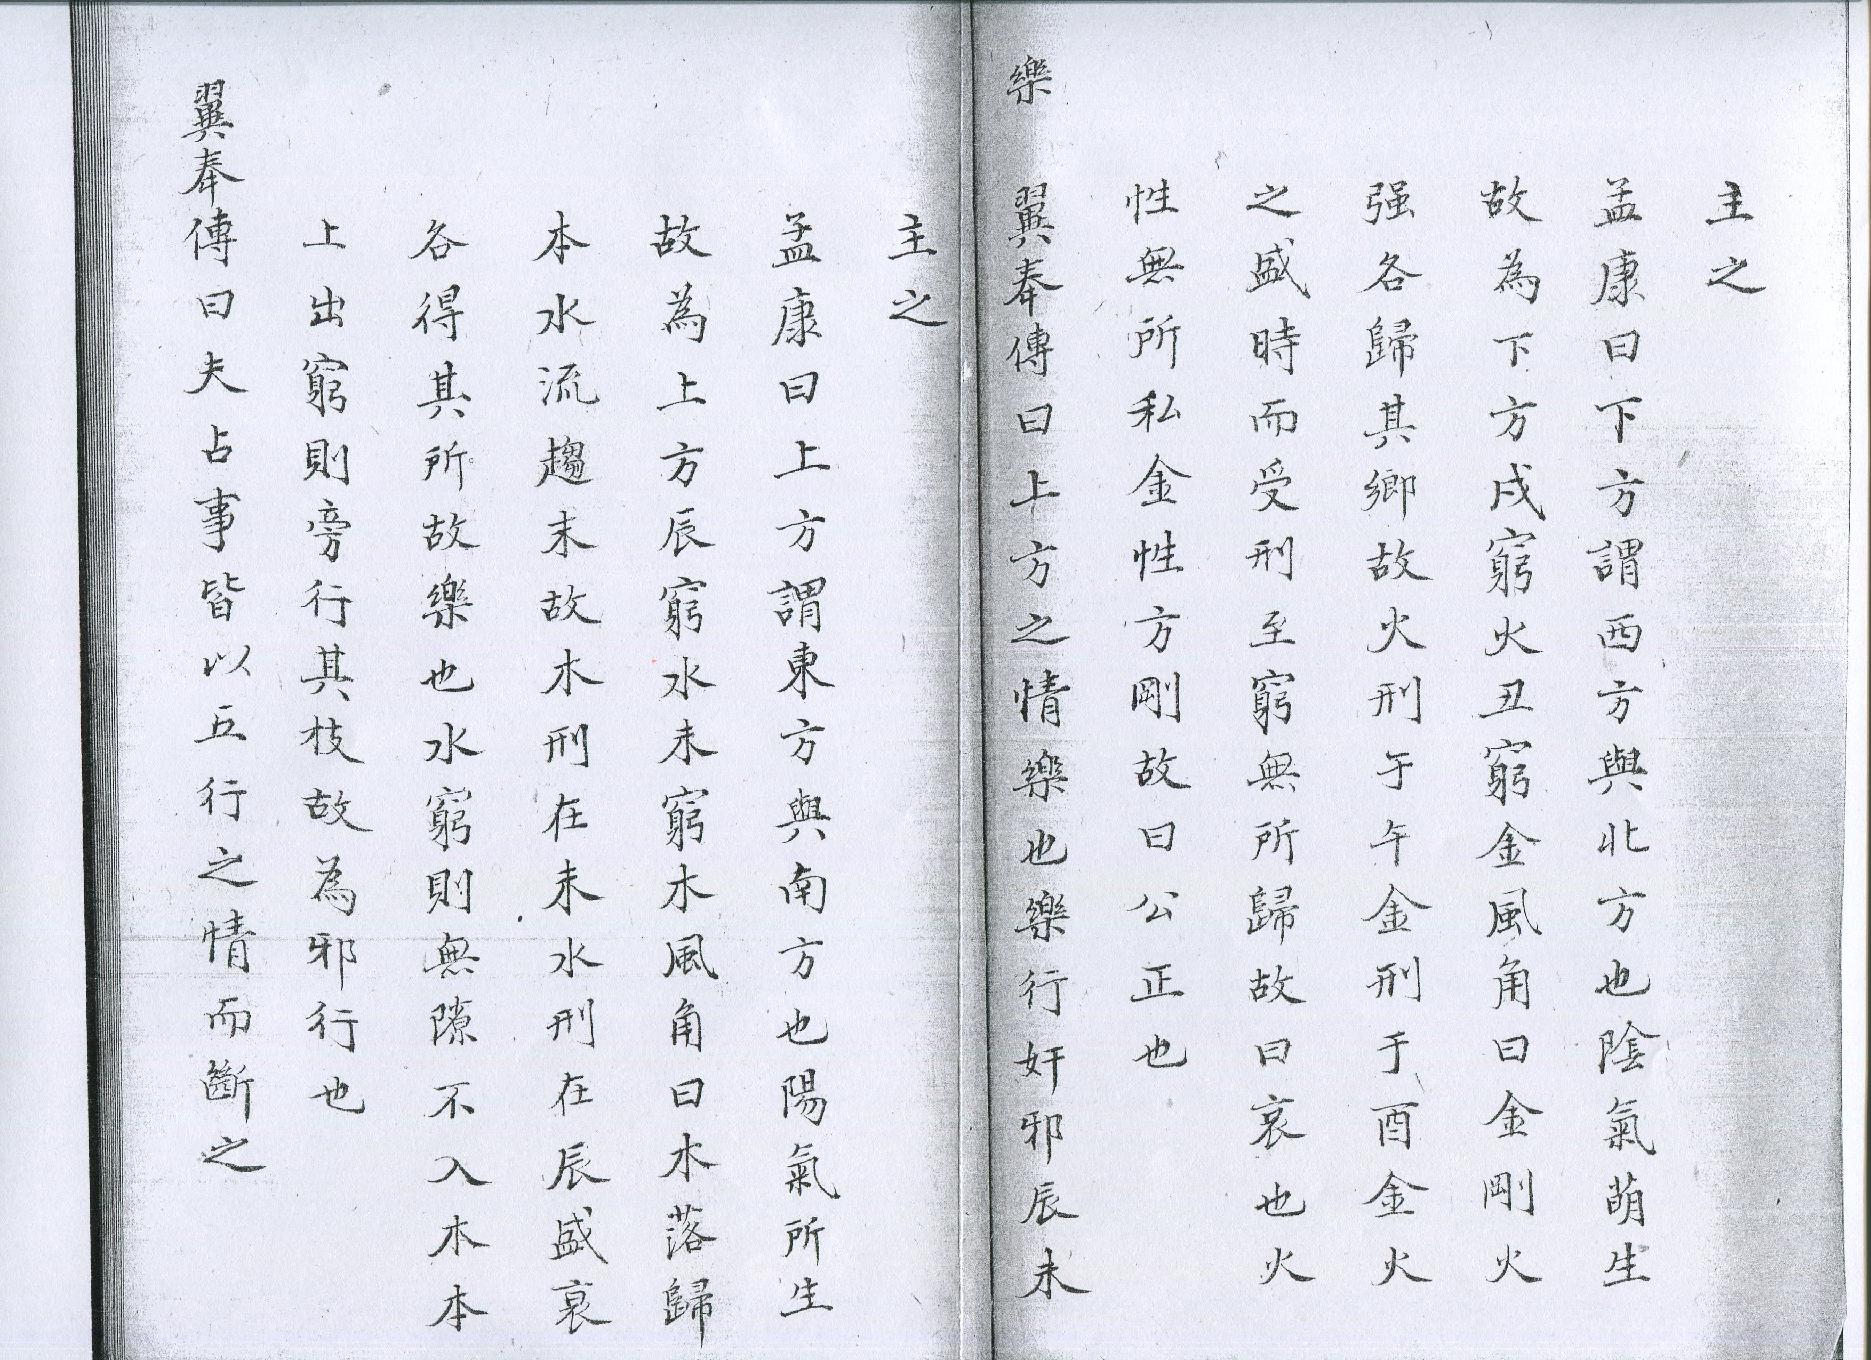 主之
孟康曰下方謂西方與北方也陰氣萌生
故為下方戌窮火丑窮金風角曰金剛火
强各歸其鄉故火刑于午金刑于酉金火
之盛時而受刑至窮無所歸故曰哀也火
性無所私金性方剛故曰公正也
樂 翼奉傳曰上方之情樂也樂行奸邪辰未
主之
孟康曰上方謂東方與南方也陽氣所生
故為上方辰窮水未窮木風角曰木落歸
本水流趨末故木刑在未水刑在辰盛衰
各得其所故樂也水窮則無隙不入木本
上出窮則旁行其枝故為邪行也
翼奉傳曰夫占事皆以五行之情而斷之